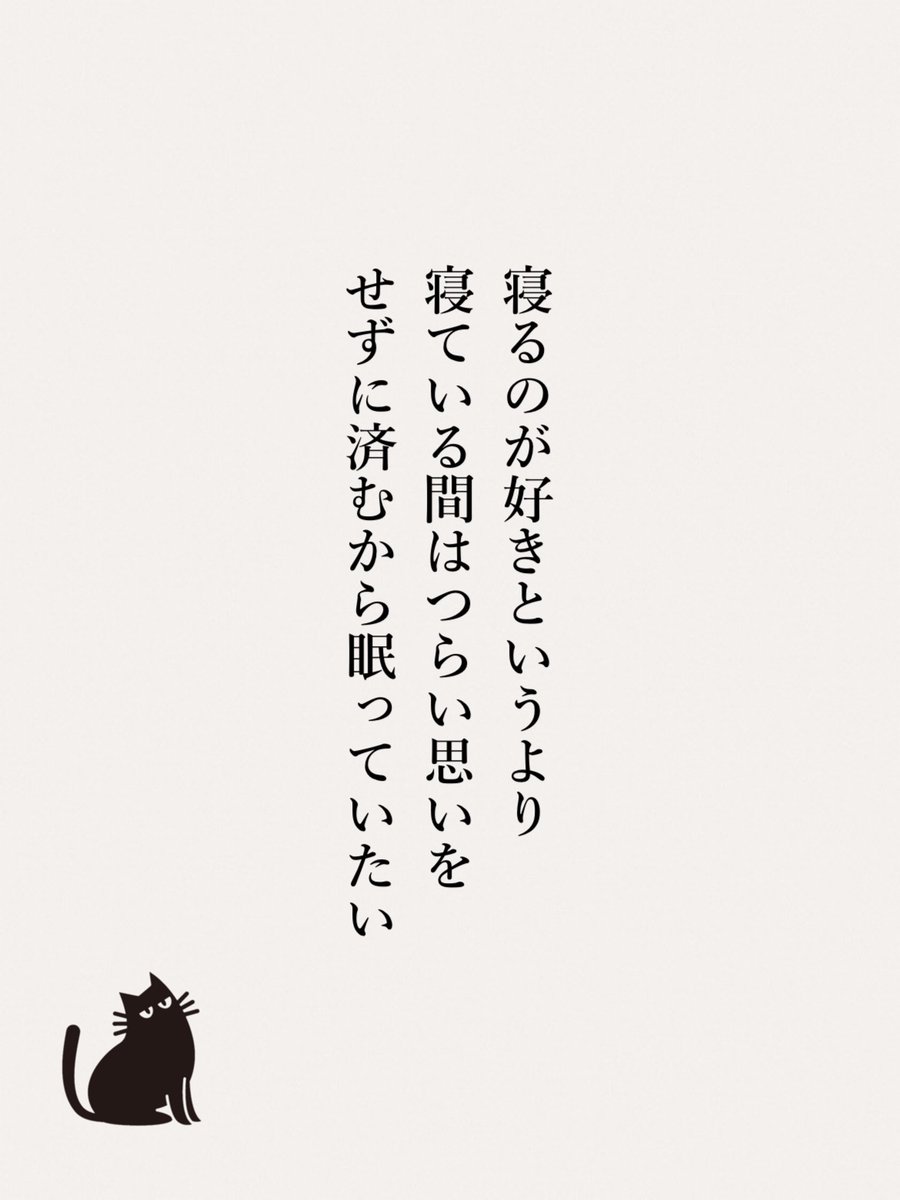 寝るのが好きというより
寝ている間はつらい思いを
せずに済むから眠っていたい